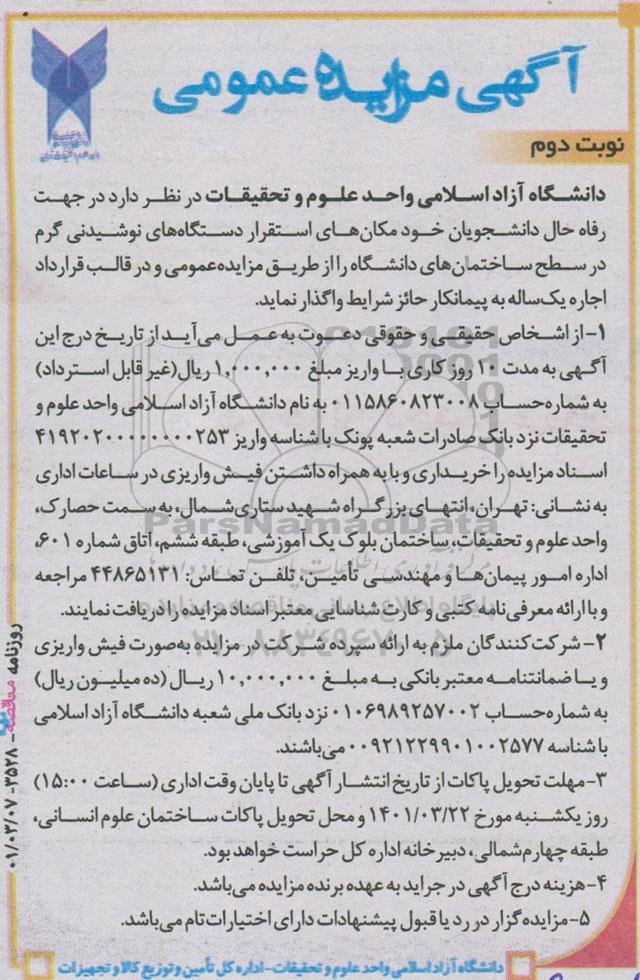 آگهی مزایده عمومی
نوبت دوم
دانشگاه آزاد اسلامی واحد علوم و تحقیقات در نظر دارد در جهت
رفاه حال دانشجویان خود مکان‌های استقرار دستگاه‌های نوشیدنی گرم
در سطح ساختمان‌های دانشگاه را از طریق مزایده‌عمومی و در قالب قرارداد
اجاره یک‌ساله به پیمانکار حائز شرایط واگذار نماید.
۱- از اشخاص حقیقی و حقوقی دعوت به عمل می‌آید از تاریخ درج این
آگهی به مدت ۱۰ روز کاری با واریز مبلغ ۱,۰۰۰,۰۰۰ ریال(غیر قابل استرداد)
به شماره‌حساب ۰۱۱۵۸۶۰۸۲۳۰۰۸ به نام دانشگاه آزاد اسلامی واحد علوم و
تحقیقات نزد بانک صادرات شعبه پونک با شناسه واریز ۴۱۹۲۰۲۰۰۰۰۰۰۰۰۰۲۵۳
اسناد مزایده را خریداری و با به همراه داشتن فیش واریزی در ساعات اداری
به نشانی: تهران، انتهای بزرگراه شهید ستاری‌شمال، به سمت حصارک،
واحد علوم و تحقیقات، ساختمان بلوک یک آموزشی، طبقه ششم، اتاق شماره ۶۰۱،
اداره امور پیمان‌ها و مهندسی تأمین، تلفن تماس: ۴۴۸۶۵۱۳۱ مراجعه
و با ارائه معرفی‌نامه کتبی و کارت شناسایی معتبر اسناد مزایده را دریافت نمایند.
۲- شرکت‌کنندگان ملزم به ارائه سپرده شرکت در مزایده به‌صورت فیش واریزی
و یا ضمانتنامه معتبر بانکی به مبلغ ۱۰,۰۰۰,۰۰۰ ریال (ده میلیون ریال)
به شماره‌حساب ۰۱۰۶۹۸۹۲۵۷۰۰۲ نزد بانک ملی شعبه دانشگاه آزاد اسلامی
با شناسه ۰۰۹۲۱۲۲۹۹۰۱۰۰۲۵۷۷ می‌باشند.
۳- مهلت تحویل پاکات از تاریخ انتشار آگهی تا پایان وقت اداری (ساعت ۱۵:۰۰)
روز یکشنبه مورخ ۱۴۰۱/۰۳/۲۲ و محل تحویل پاکات ساختمان علوم انسانی،
طبقه چهارم‌شمالی، دبیرخانه اداره کل حراست خواهد بود.
۴- هزینه درج آگهی در جراید به عهده برنده مزایده می‌باشد.
۵- مزایده‌گزار در رد یا قبول پیشنهادات دارای اختیارات تام می‌باشد.
دانشگاه آزاد اسلامی واحد علوم و تحقیقات - اداره کل تأمین و توزیع کالا و تجهیزات
روزنامه مناقصه - ۳۵۲۸ - ۰۱/۰۳/۰۷
ParsNamadData